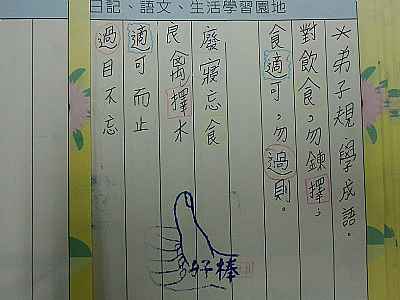 日記、語文、生活學習園地
*弟子規學成語。
對飲食，勿鍊擇；
食適可，勿過則。
廢寢忘食
良禽擇木
適可而止
過目不忘
好棒